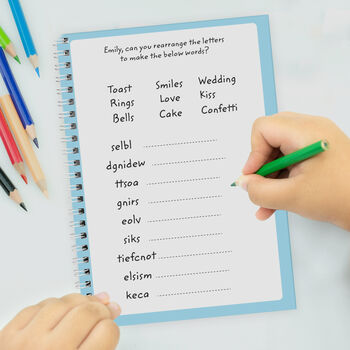 Emily, can you rearrange the letters
to make the below words?
Toast Smiles Wedding
Rings Love Kiss
Bells Cake Confetti
selbl
dgnidew
ttsoa
gnirs
eolv
siks
tiefcnot
elsism
keca